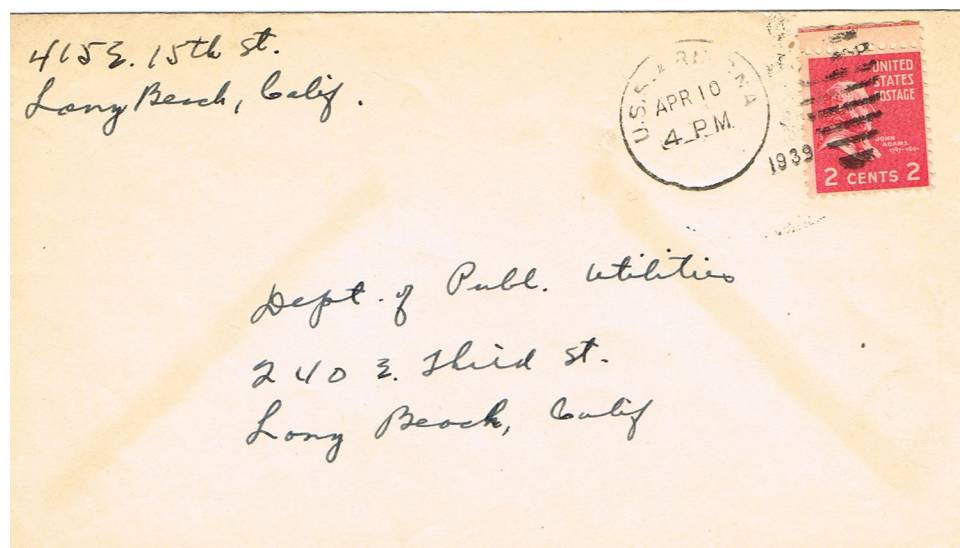 415 E. 15th St.
Long Beach, Calif.
U.S.S. ARIZONA
APR 10
4 P.M.
1939
UNITED
STATES
POSTAGE
JOHN
ADAMS
1797-1801
2 CENTS 2
Dept. of Publ. Utilities
240 E. Third St.
Long Beach, Calif